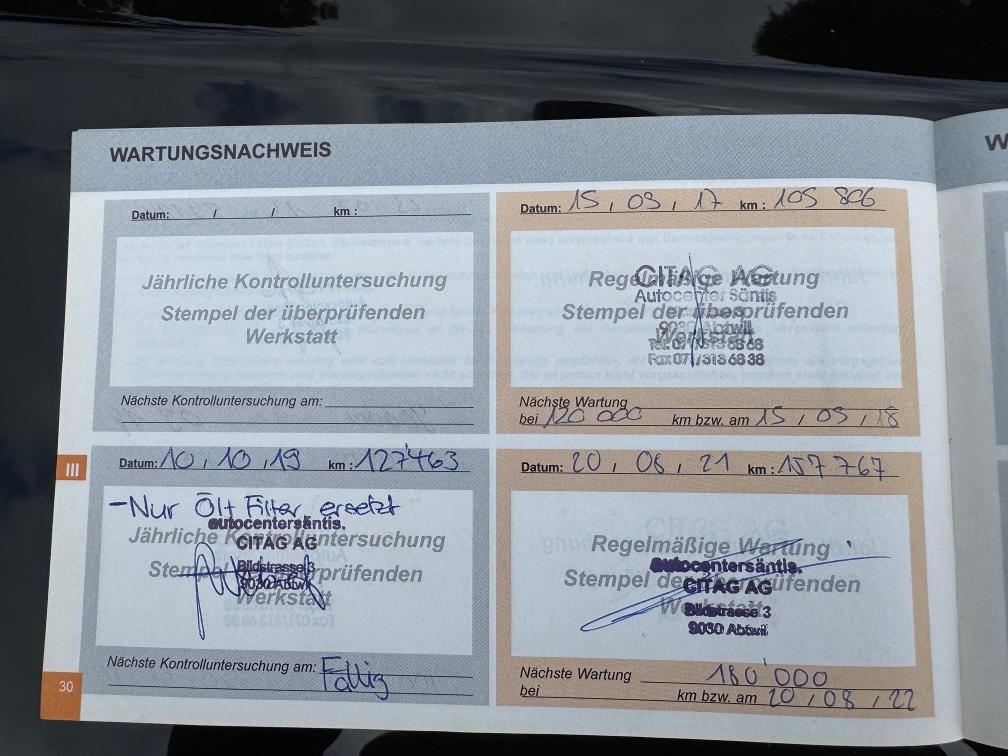 WARTUNGSNACHWEIS
W
Datum: / / km :
Jährliche Kontrolluntersuchung
Stempel der überprüfenden
Werkstatt
Nächste Kontrolluntersuchung am:
Datum: 15 , 09 , 17 km : 105 806
Regelmäßige Wartung
Stempel der überprüfenden
Werkstatt
CITAG AG
Autocenter Säntis
9030 Abtwil
Tel. 071/313 68 68
Fax 071/313 68 38
Nächste Wartung
bei 120 000 km bzw. am 15 / 09 / 18
III
Datum: 10 , 10 , 19 km : 127'463
- Nur Öl + Filter ersetzt
Jährliche Kontrolluntersuchung
Stempel der überprüfenden
Werkstatt
autocentersäntis.
CITAG AG
Bildstrasse 3
9030 Abtwil
Nächste Kontrolluntersuchung am: Fällig
Datum: 20 , 08 , 21 km : 157 767
Regelmäßige Wartung
Stempel der überprüfenden
Werkstatt
autocentersäntis.
CITAG AG
Bildstrasse 3
9030 Abtwil
Nächste Wartung 180'000
bei km bzw. am 20 / 08 / 22
30